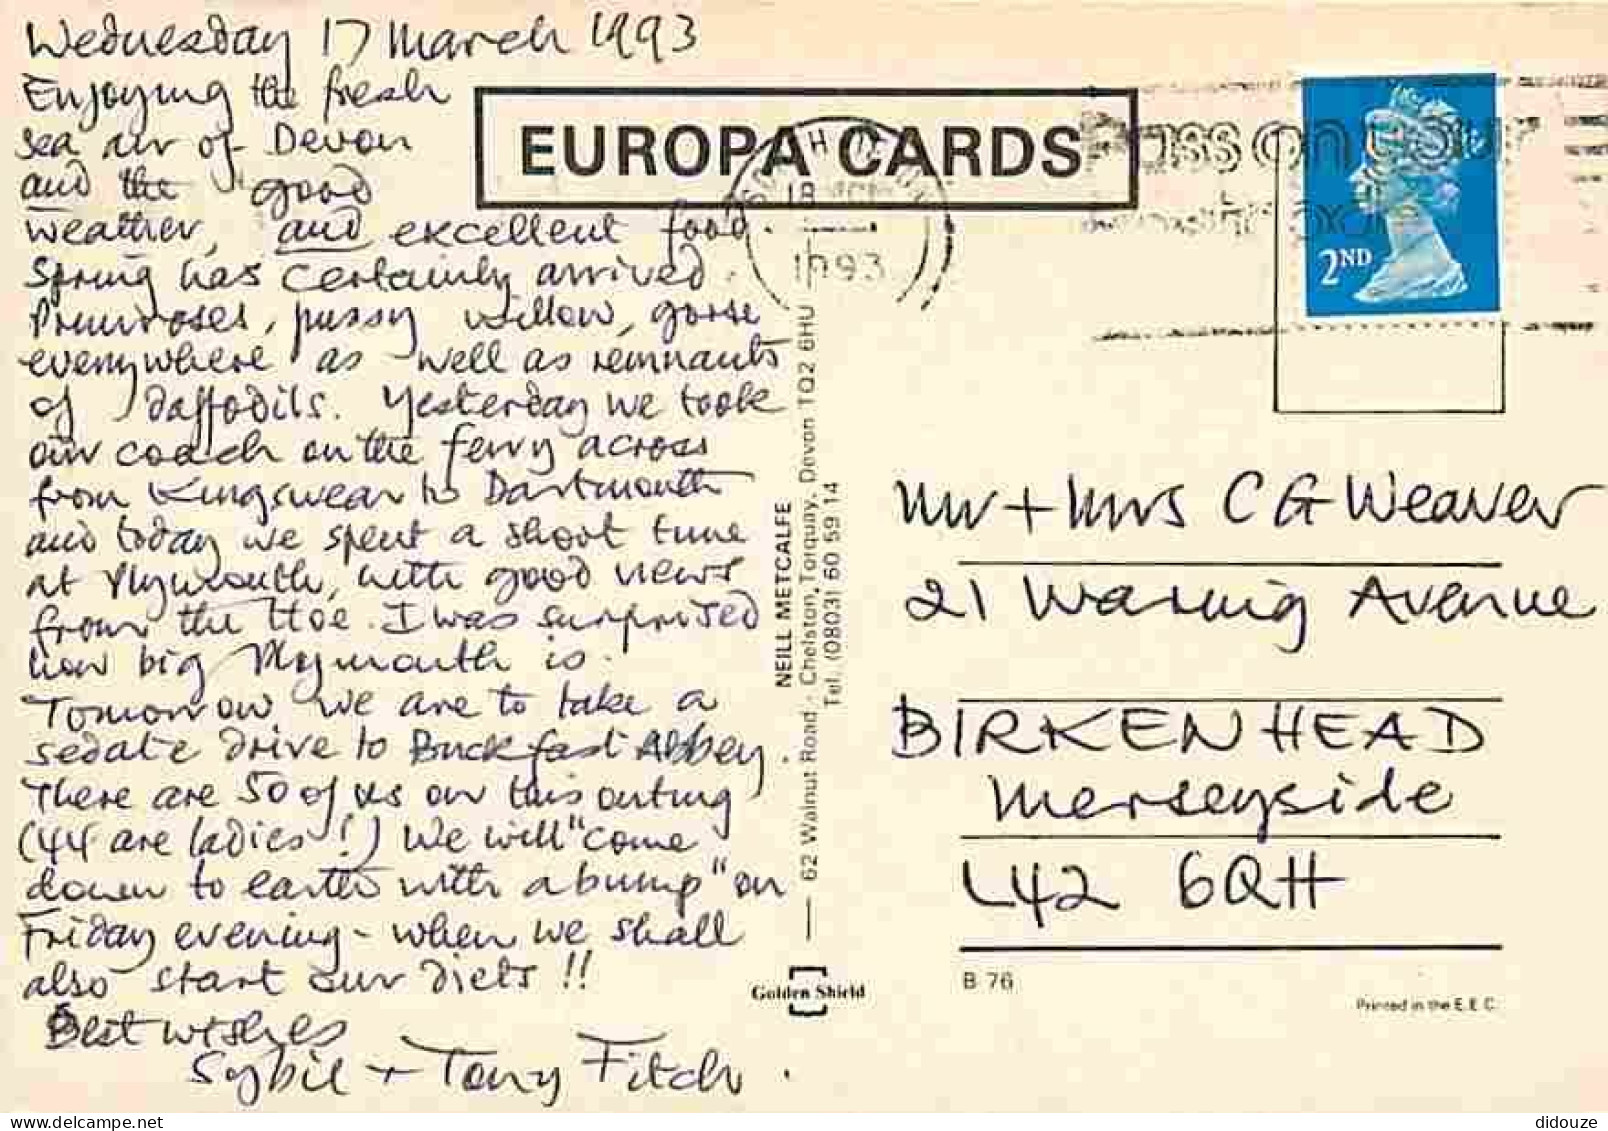 Wednesday 17 March 1993
Enjoying the fresh
sea air of Devon
and the good
weather, and excellent food
Spring has certainly arrived.
Primroses, pussy willow, gorse
everywhere as well as remnants
of daffodils. Yesterday we took
our coach on the ferry across
from Kingswear to Dartmouth
and today we spent a short time
at Plymouth, with good views
from the Hoe. I was surprised
how big Plymouth is.
Tomorrow we are to take a
sedate drive to Buckfast Abbey.
There are 50 of us on this outing
(44 are ladies!) We will "come
down to earth with a bump" on
Friday evening - when we shall
also start our diets!!
Best wishes
Sybil + Tony Fitch.
EUROPA CARDS
18
1993
Pass on your
2ND
NEILL METCALFE
62 Walnut Road - Chelston, Torquay, Devon TQ2 6HU
Tel. (0803) 60 59 14
Golden Shield
Mr + Mrs C G Weaver
21 Waring Avenue
BIRKENHEAD
Merseyside
L42 6QH
B 76
Printed in the E.E.C.
delcampe.net
didouze